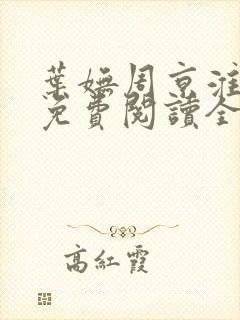 葉嫵周京淮
免費閱讀全
高紅霞